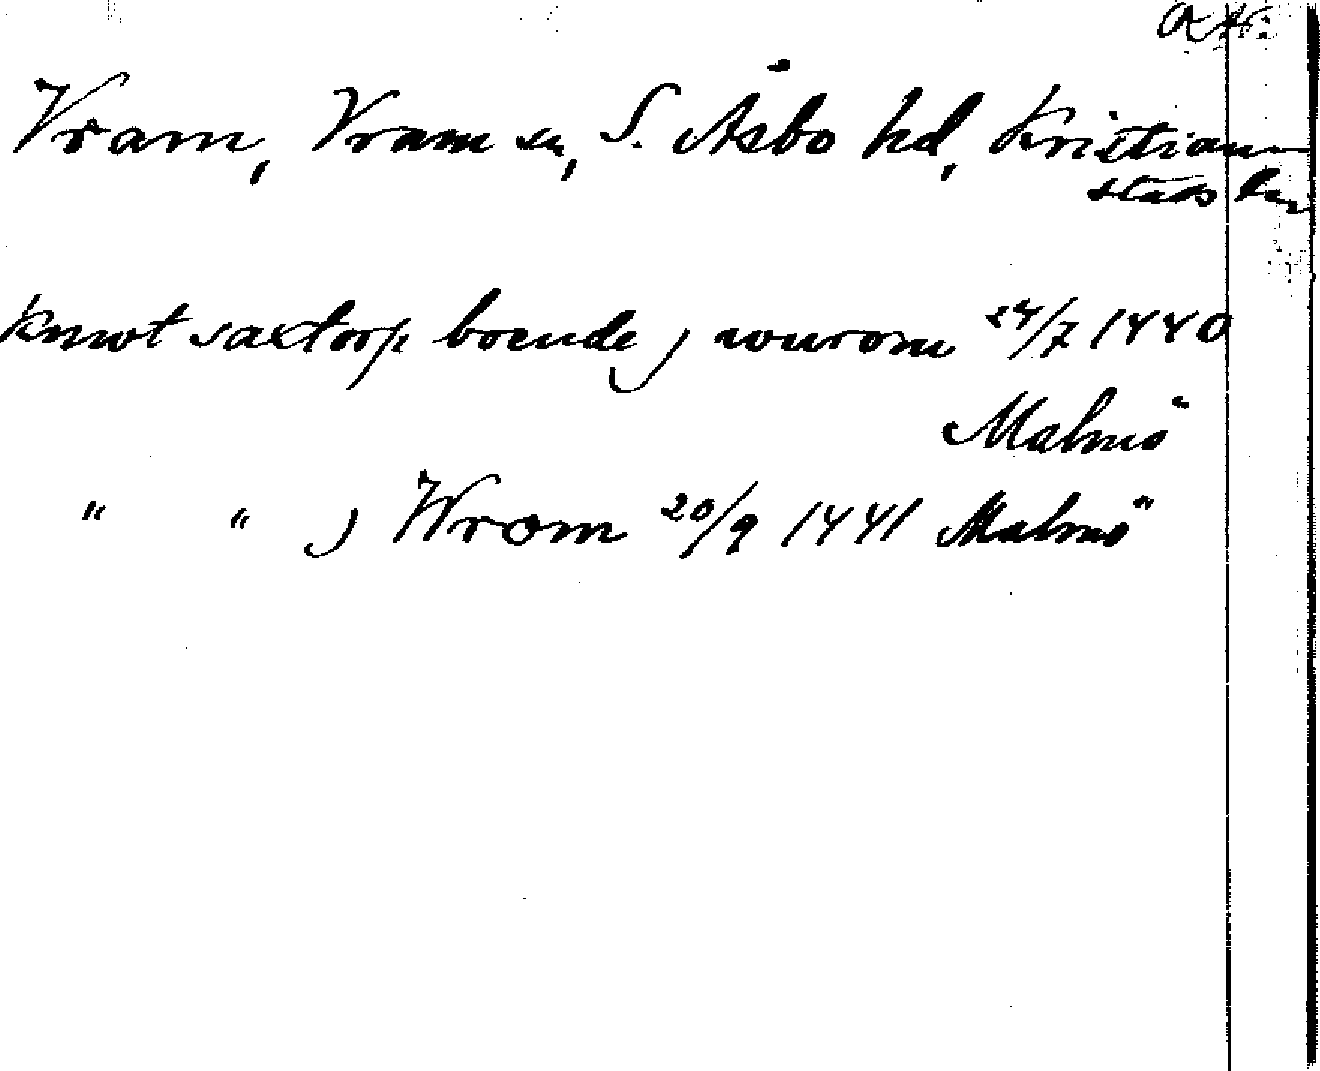 Vram, Vram sn, S. Åsbo hd, Kristian-
stads län
knwt saxtorp boende j wurom 24/7 1440
Malmö
" " j Wrom 20/9 1441 Malmö